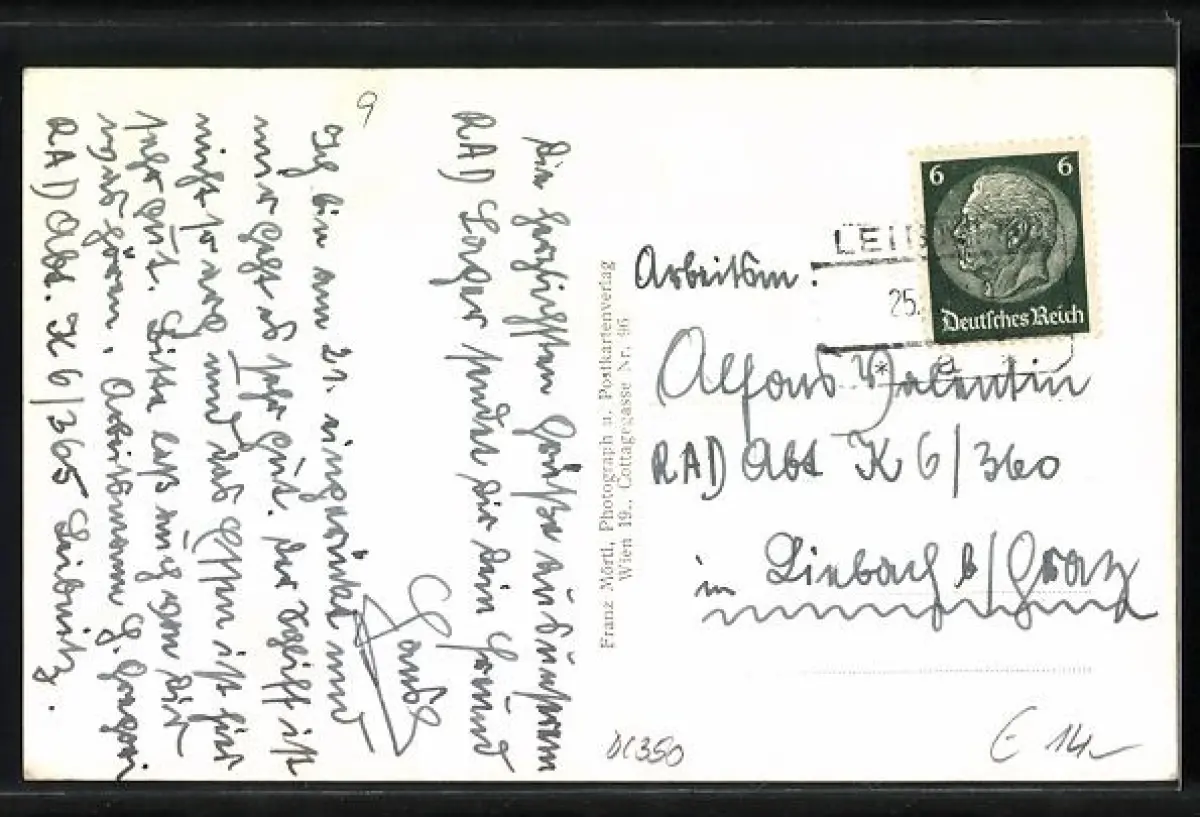 Die herzlichsten Grüße aus unserem
RAD Lager sendet dir dein Freund
9
Ich bin am 21. eingerückt und
mir geht es sehr gut. Der Dienst ist
nicht so und das Essen ist hier
sehr gut. Bitte laß auch von dir
was hören. Arbeitsmann G.
RAD Abt. K 6/365 Leibnitz.
Franz Mörtl, Photograph u. Postkartenverlag
Wien 19., Cottagegasse Nr. 96
LEIB
25.
6 6
Deutsches Reich
Arbeitsm.
Alfons Valentin
RAD Abt K 6/360
in Liebach b/Graz
DC350
€ 14.-